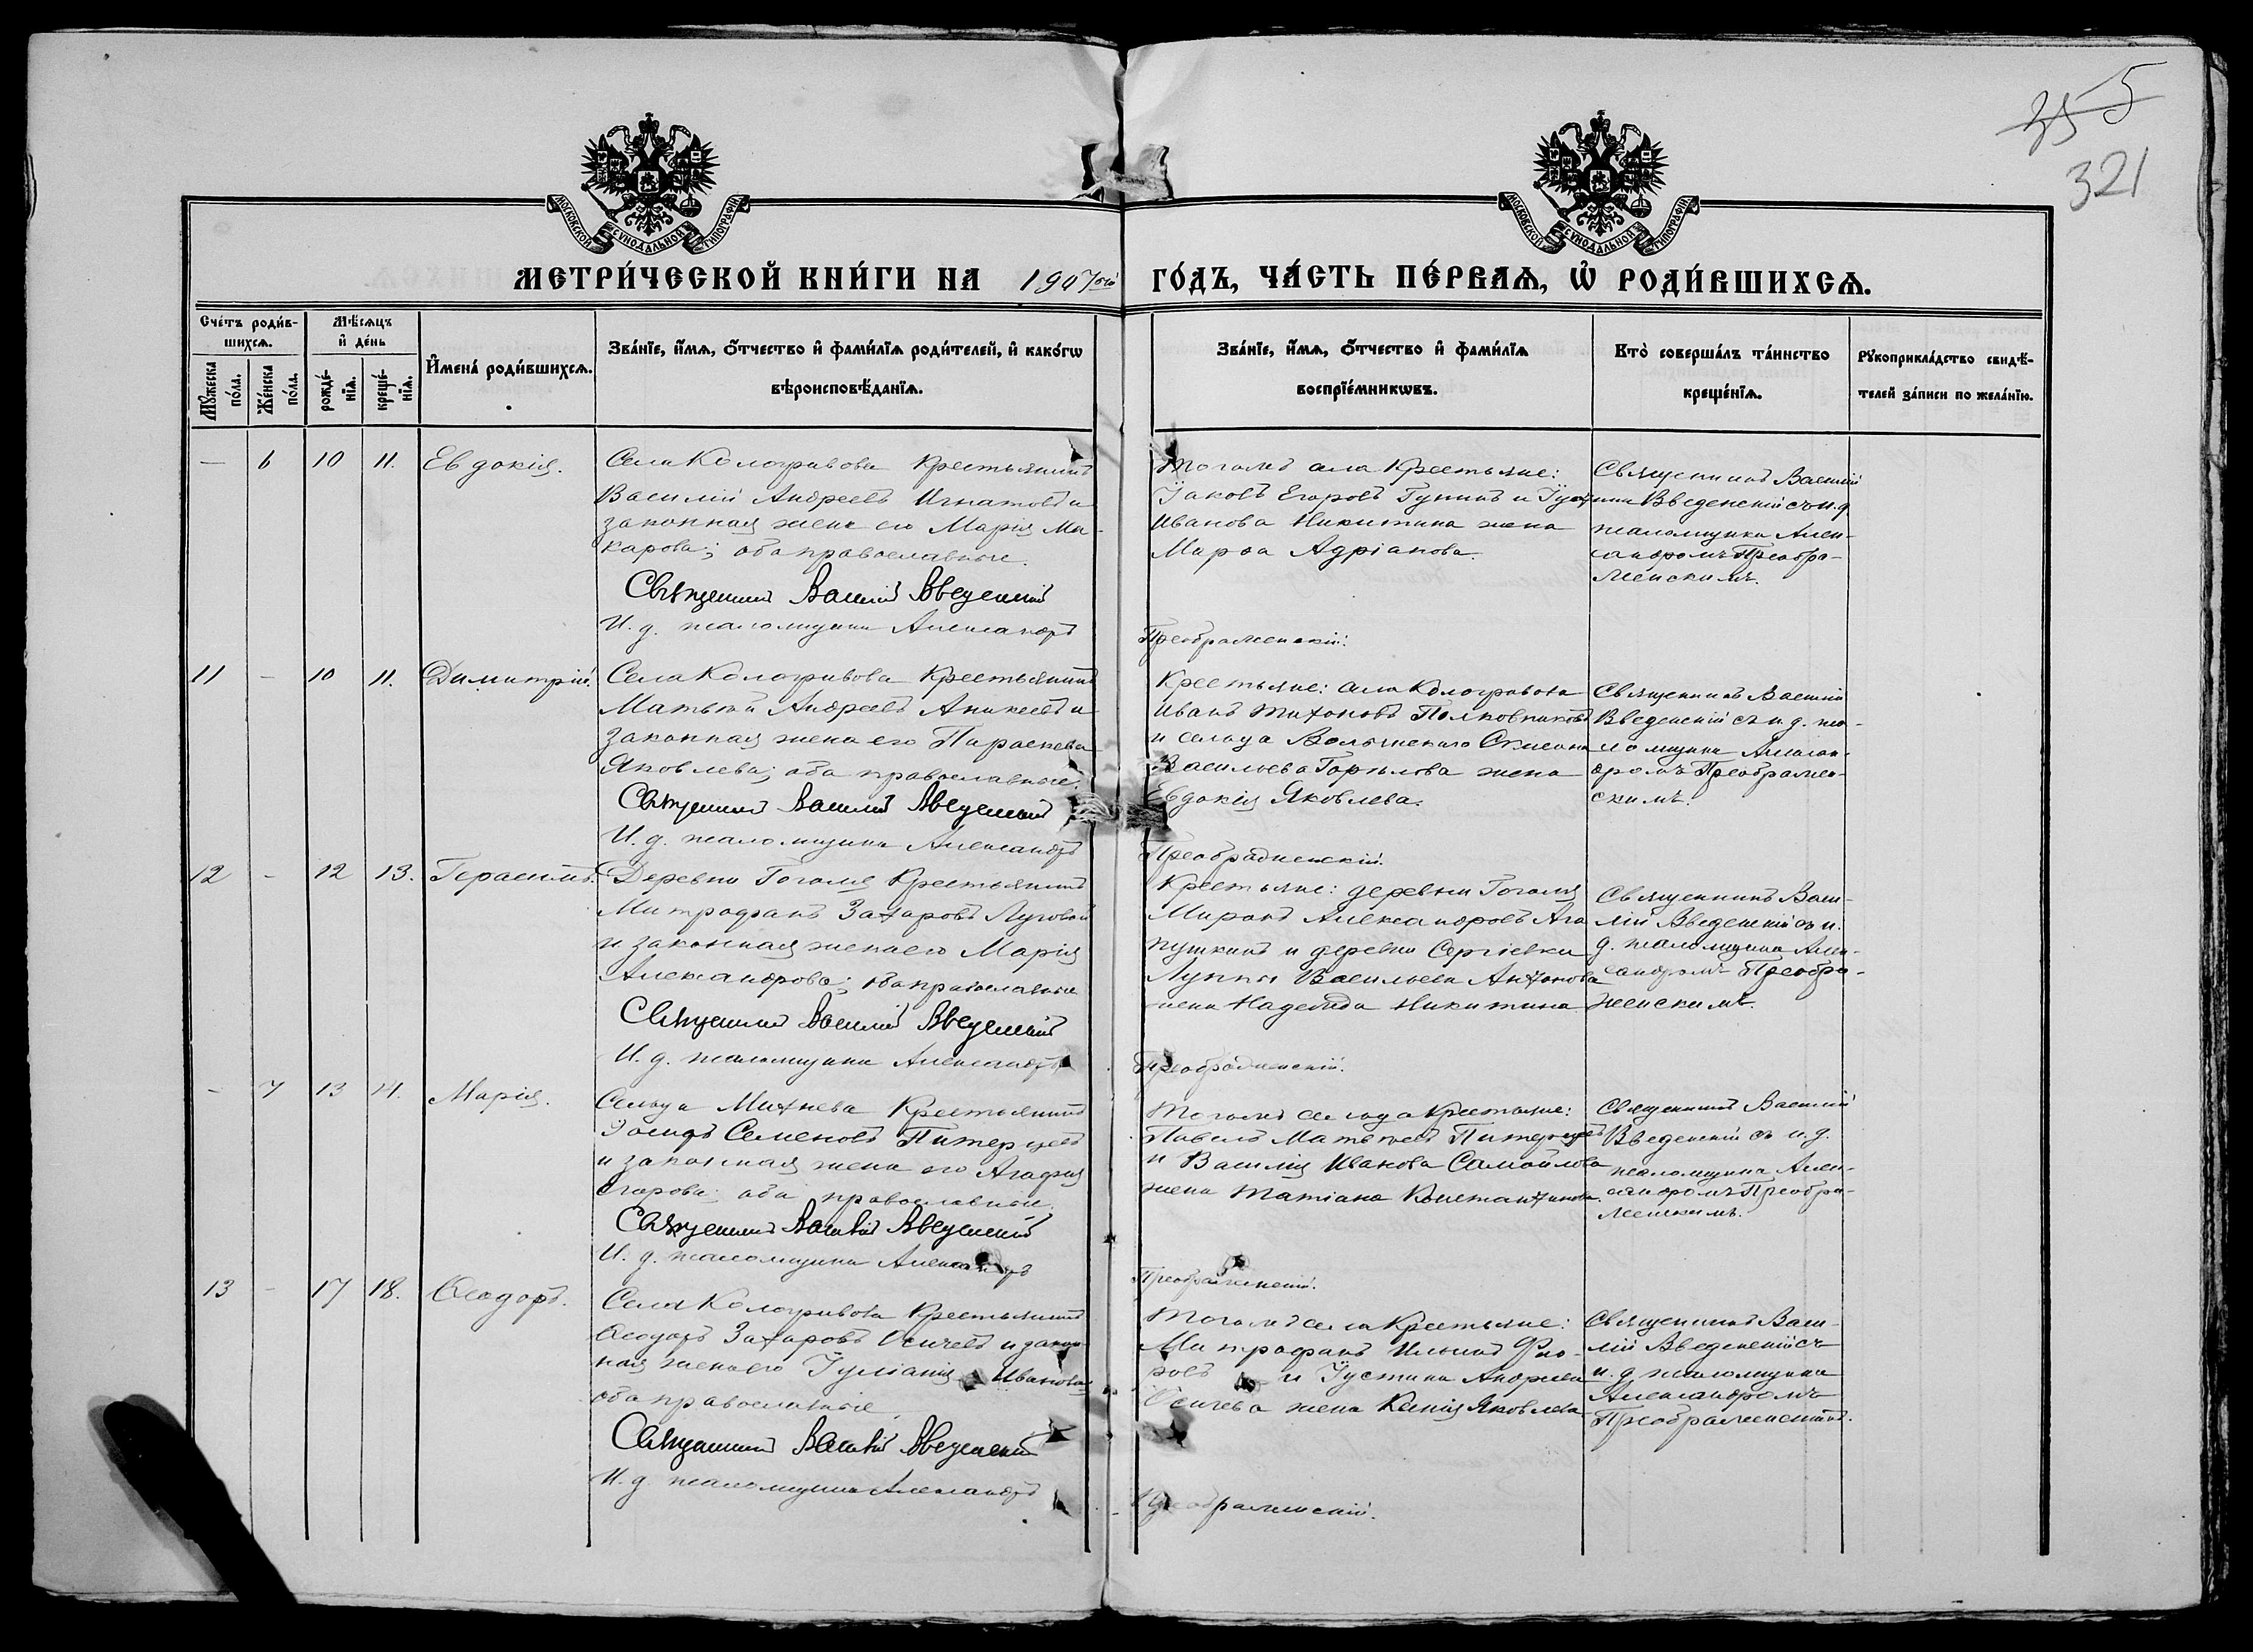 35 5
321
МОСКОВСКОЙ СѴНОДАЛЬНОЙ ТИПОГРАФІИ
МОСКОВСКОЙ СѴНОДАЛЬНОЙ ТИПОГРАФІИ
МЕТРИ́ЧЕСКОЙ КНИ́ГИ НА 1907ой ГО́ДЪ, ЧА́СТЬ ПЕ́РВАѦ, Ѡ҆ РОДИ́ВШИХСѦ.
Сче́тъ роди́в-
шихсѧ.
Мꙋжеска по́ла.
Же́нска по́ла.
Мѣ́сѧцъ
и҆ де́нь
рожде́-
нїѧ.
креще́-
нїѧ.
И҆мена̀ роди́вшихсѧ.
Зва́нїе, и҆́мѧ, ѻ҆́тчество и҆ фами́лїѧ роди́телей, и҆ како́гѡ
вѣроисповѣ́данїѧ.
Зва́нїе, и҆́мѧ, ѻ҆́тчество и҆ фами́лїѧ
воспрїе́мникѡвъ.
Кто̀ соверша́лъ та́инство
креще́нїѧ.
Рꙋкоприкла́дство свидѣ́-
телей за́писи по жела́нїю.
— 6 10 11. Евдокія.
Села Кологривова Крестьянинъ
Василій Андреевъ Игнатовъ и
законная жена его Марія Ма-
карова; оба православные.
Священникъ Василій Введенскій
И. д. псаломщика Александръ
Преображенскій.
Тогоже села Крестьяне:
Іаковъ Егоровъ Гунинъ и
Иванова Никитина жена
Марѳа Адріанова.
Священникъ Василій
Введенскій съ и. д.
псаломщика Алек-
сандромъ Преобра-
женскимъ.
11 - 10 11. Димитрій.
Села Кологривова Крестьянинъ
Матвѣй Андреевъ Аникеевъ и
законная жена его Параскева
Яковлева; оба православные.
Священникъ Василій Введенскій
И. д. псаломщика Александръ
Преображенскій.
Крестьяне: села Кологривова
Иванъ Тихоновъ Полковниковъ
и сельца
Васильева Горшкова жена
Евдокія Яковлева.
Священникъ Василій
Введенскій съ и. д. пса-
ломщика Алексан-
дромъ Преображен-
скимъ.
12 - 12 13. Герасимъ.
Деревни Гоголя Крестьянинъ
Митрофанъ Захаровъ Луговой
и законная жена его Марія
Александрова; оба православные
Священникъ Василій Введенскій
И. д. псаломщика Александръ
Преображенскій.
Крестьяне: деревни Гоголя
Миронъ Александровъ Ага
пушкинъ и деревни Сергіевки
Луппы Васильева Антонова
жена Надежда Никитина
Священникъ Васи-
лій Введенскій съ и.
д. псаломщика Алек-
сандромъ Преобра-
женскимъ.
- 7 13 14. Марія.
Сельца Михнева Крестьянинъ
Іосифъ Семеновъ Питерцевъ
и законная жена его Агафія
Егорова; оба православные.
Священникъ Василій Введенскій
И. д. псаломщика Александръ
Преображенскій.
Тогоже сельца Крестьяне:
Павелъ Матвѣевъ Питерцевъ
и Василія Иванова Самойлова
жена Татіана Константинова.
Священникъ Василій
Введенскій съ и. д.
псаломщика Алек-
сандромъ Преобра-
женскимъ.
13 - 17 18. Ѳеодоръ.
Села Кологривова Крестьянинъ
Ѳеодоръ Захаровъ Осичевъ и закон-
ная жена его Іуліанія Иванова
оба православные.
Священникъ Василій Введенскій
И. д. псаломщика Александръ
Преображенскій.
Тогоже села Крестьяне:
Митрофанъ Ильинъ Фло-
ровъ и Іустина Андреева
Осичева жена Ксенія Яковлева
Священникъ Васи-
лій Введенскій съ
и. д. псаломщика
Александромъ
Преображенскимъ.